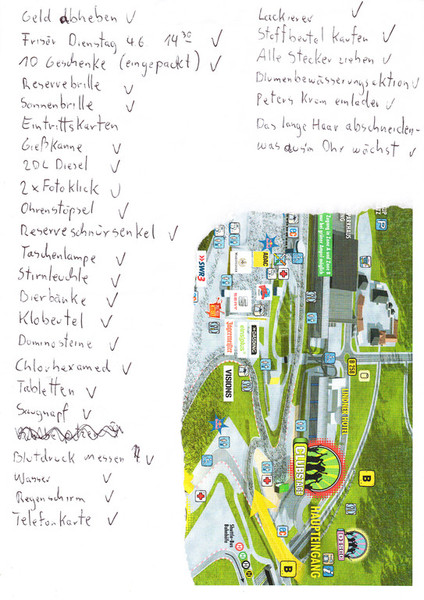 Geld abheben ✓
Frisör Dienstag 4.6 14³⁰ ✓
10 Geschenke (eingepackt) ✓
Reservebrille ✓
Sonnenbrille ✓
Eintrittskarten
Gießkanne ✓
20L Diesel ✓
2x Fotoklick ✓
Ohrenstöpsel ✓
Reserveschnürsenkel ✓
Taschenlampe ✓
Stirnleuchte ✓
Bierbänke ✓
Klobeutel ✓
Dominosteine ✓
Chlorhexamed ✓
Tabletten ✓
Saugnapf ✓
Blutdruck messen ✓
Wasser ✓
Regenschirm ✓
Telefonkarte ✓
Lackierer ✓
Stoffbeutel kaufen ✓
Alle Stecker ziehen ✓
Blumenbewässerungsaktion ✓
Peters Kram einladen ✓
Das lange Haar abschneiden
was aus'm Ohr wächst ✓
SWR3
ADAC
Jägermeister
VISIONS
B 258
LINDNER HOTEL
CLUBSTAGE
HAUPTEINGANG
B
B
DISCO
Shuttle-Bus